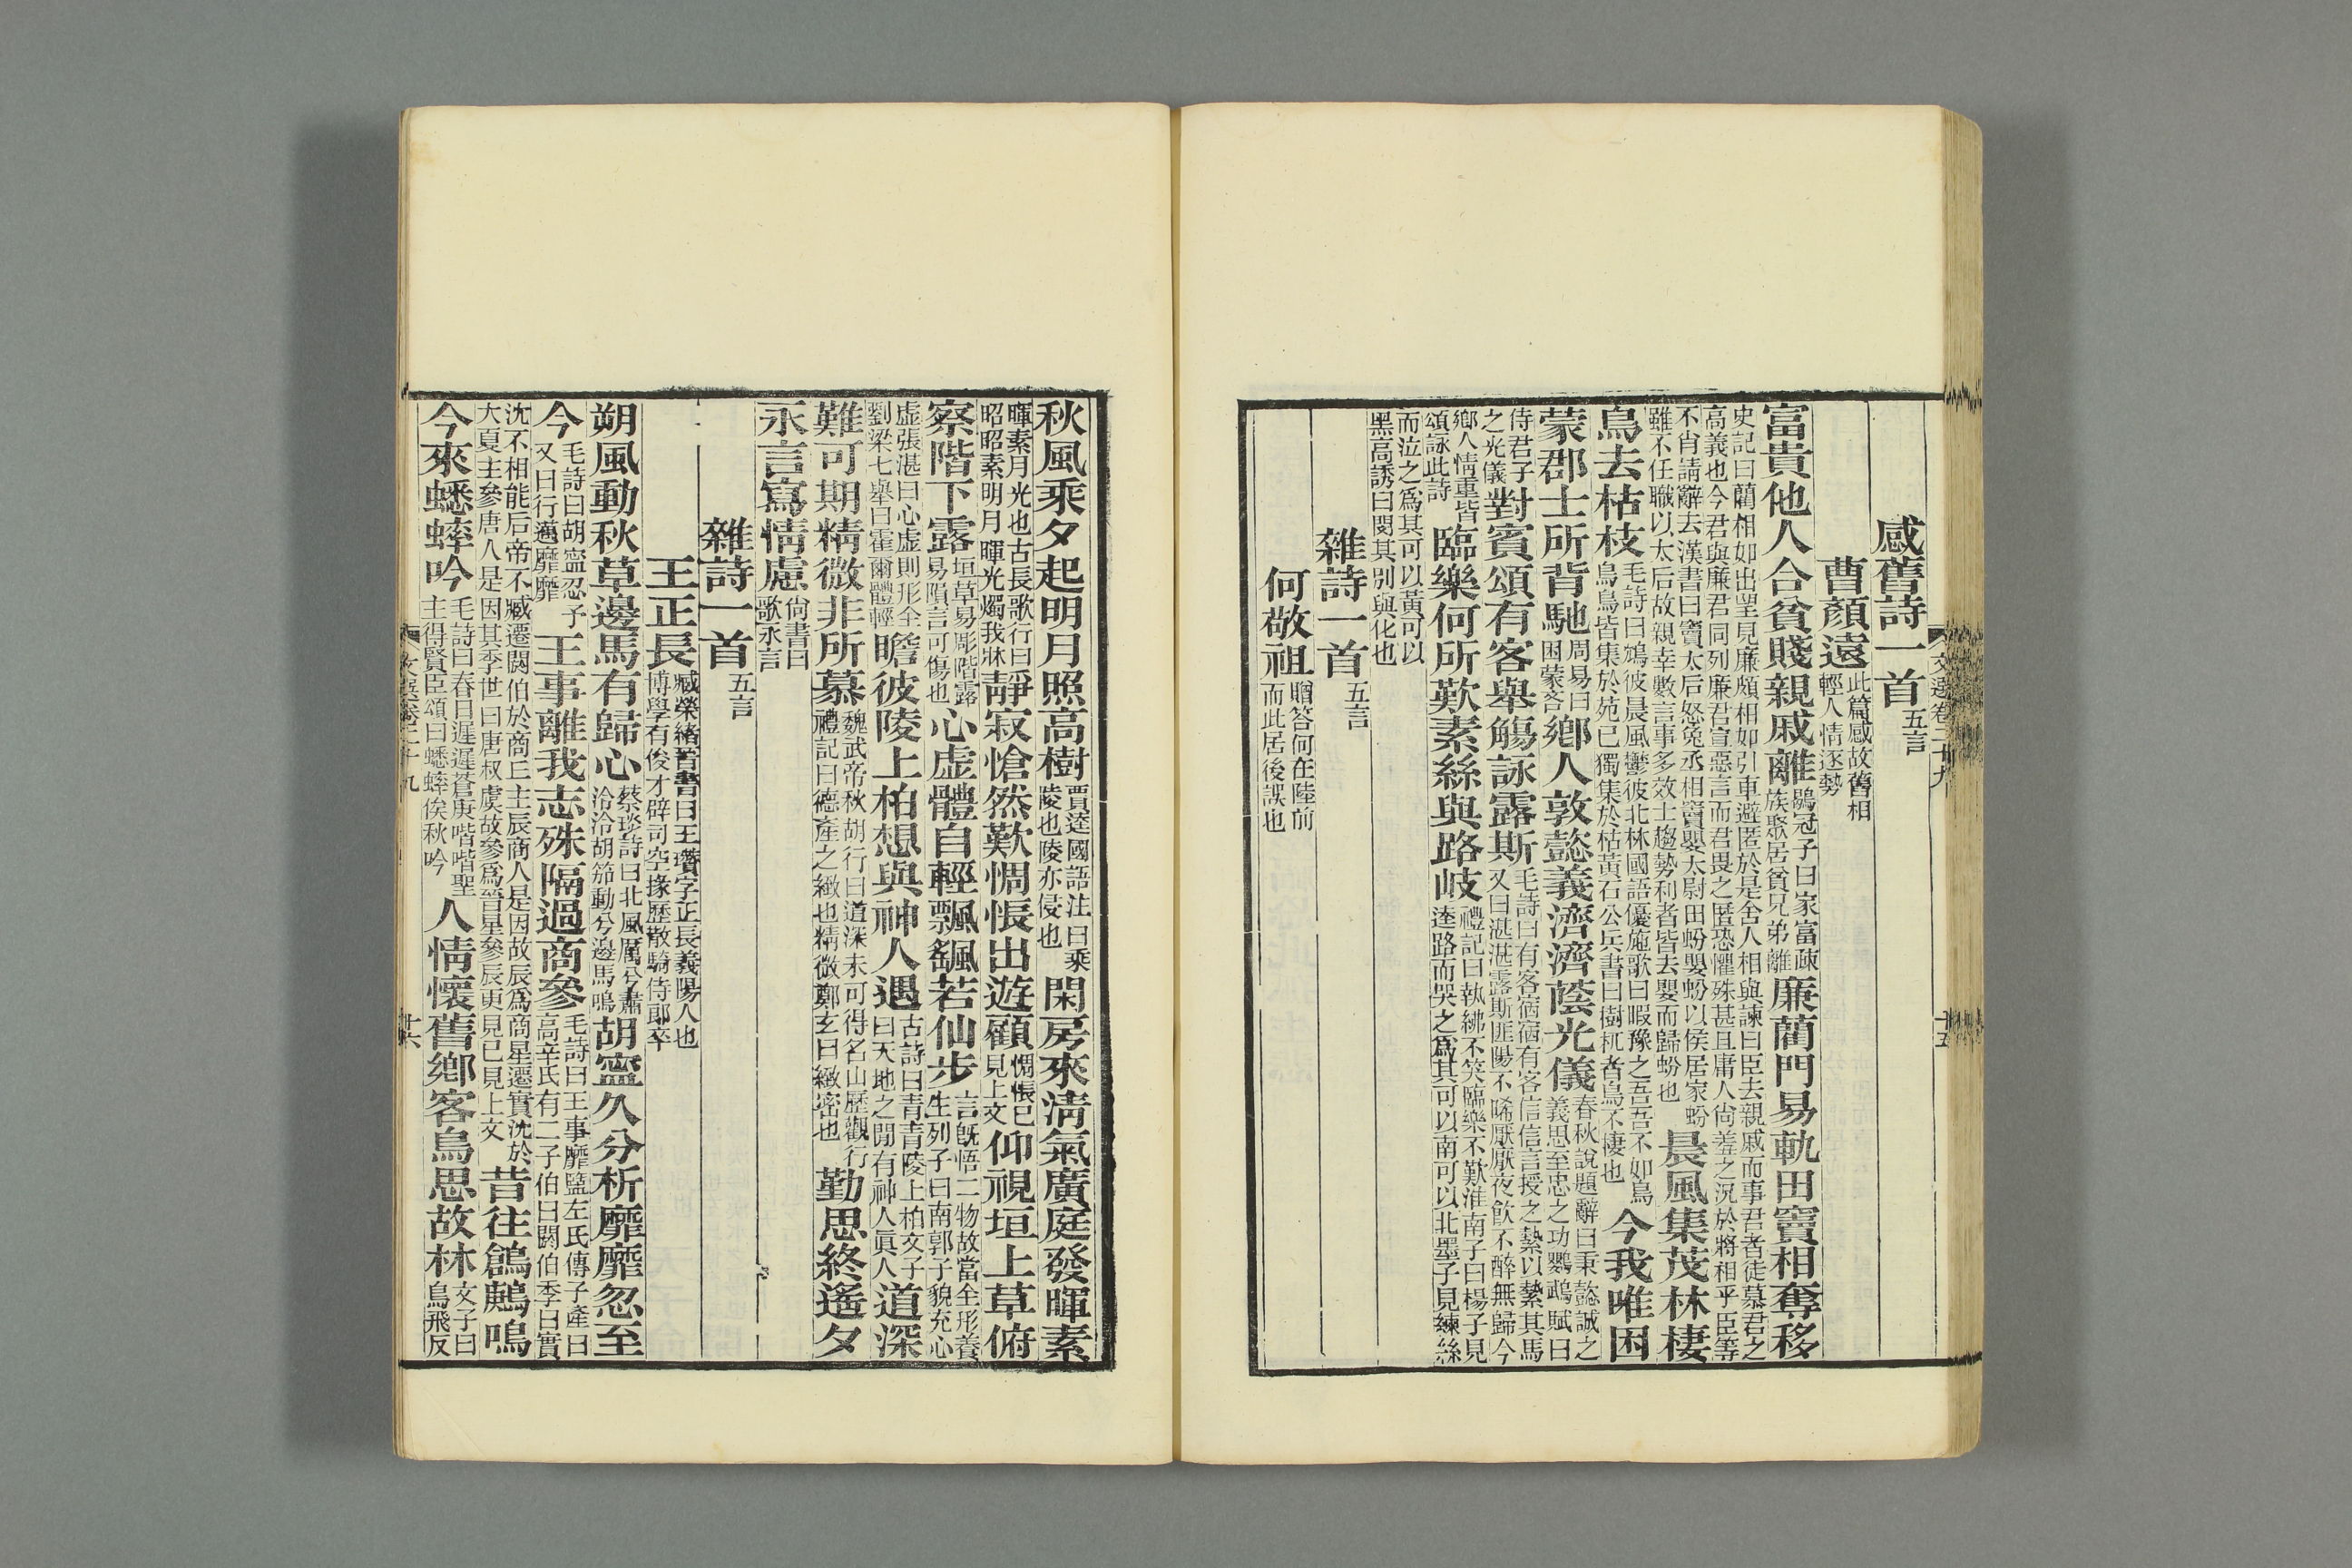 感舊詩一首五言
曹顏遠此篇感故舊相輕人情逐勢
富貴他人合貧賤親戚離鶡冠子曰家富疎族聚居貧兄弟離廉藺門易軌田竇相奪移
史記曰藺相如出望見廉頗相如引車避匿於是舍人相與諫曰臣去親戚而事君者徒慕君之
高義也今君與廉君同列廉君宣惡言而君畏之匿恐懼殊甚且庸人尚羞之況於將相乎臣等
不肖請辭去漢書曰竇太后怒免丞相竇嬰太尉田蚡嬰蚡以侯居家蚡
雖不任職以太后故親幸數言事多效士趨勢利者皆去嬰而歸蚡也晨風集茂林棲
鳥去枯枝毛詩曰鴥彼晨風鬱彼北林國語優施歌曰暇豫之吾吾不如鳥烏鳥皆集於苑已獨集於枯黃石公兵書曰樹杌者鳥不棲也今我唯困
蒙郡士所背馳周易曰困蒙吝鄉人敦懿義濟濟蔭光儀春秋說題辭曰秉懿誠之義思至忠之功鸚鵡賦曰
侍君子之光儀對賓頌有客舉觴詠露斯毛詩曰有客宿宿有客信信言授之縶以縶其馬又曰湛湛露斯匪陽不晞厭厭夜飲不醉無歸今
鄉人情重皆頌詠此詩臨樂何所歎素絲與路岐禮記曰執紼不笑臨樂不歎淮南子曰楊子見逵路而哭之為其可以南可以北墨子見練絲
而泣之為其可以黃可以黑高誘曰閔其別與化也
雜詩一首五言
何敬祖贈答何在陸前而此居後誤也
文選卷二十九
十五
秋風乘夕起明月照高樹賈逵國語注曰乘陵也陵亦侵也閑房來清氣廣庭發暉素
暉素月光也古長歌行曰昭昭素明月暉光燭我牀靜寂愴然歎惆悵出遊顧惆悵已見上文仰視垣上草俯
察階下露垣草易彫階露易隕言可傷也心虛體自輕飄颻若仙步言既悟二物故當全形養生列子曰南郭子貌充心
虛張湛曰心虛則形全劉梁七舉曰霍爾體輕瞻彼陵上柏想與神人遇古詩曰青青陵上柏文子曰天地之閒有神人真人道深
難可期精微非所慕魏武帝秋胡行曰道深未可得名山歷觀行禮記曰德產之緻也精微鄭玄曰緻密也勤思終遙夕
永言寫情慮尚書曰歌永言
雜詩一首五言
王正長臧榮緒晉書曰王瓚字正長義陽人也博學有俊才辟司空掾歷散騎侍郎卒
朔風動秋草邊馬有歸心蔡琰詩曰北風厲兮肅泠泠胡笳動兮邊馬鳴胡寧久分析靡靡忽至
今毛詩曰胡寧忍予又曰行邁靡靡王事離我志殊隔過商參毛詩曰王事靡盬左氏傳子產曰高辛氏有二子伯曰閼伯季曰實
沈不相能后帝不臧遷閼伯於商丘主辰商人是因故辰為商星遷實沈於大夏主參唐人是因其季世曰唐叔虞故參為晉星參辰更見已見上文昔往鶬鶊鳴
今來蟋蟀吟毛詩曰春日遲遲蒼庚喈喈聖主得賢臣頌曰蟋蟀俟秋吟人情懷舊鄉客鳥思故林文子曰鳥飛反
文選卷二十九
十六